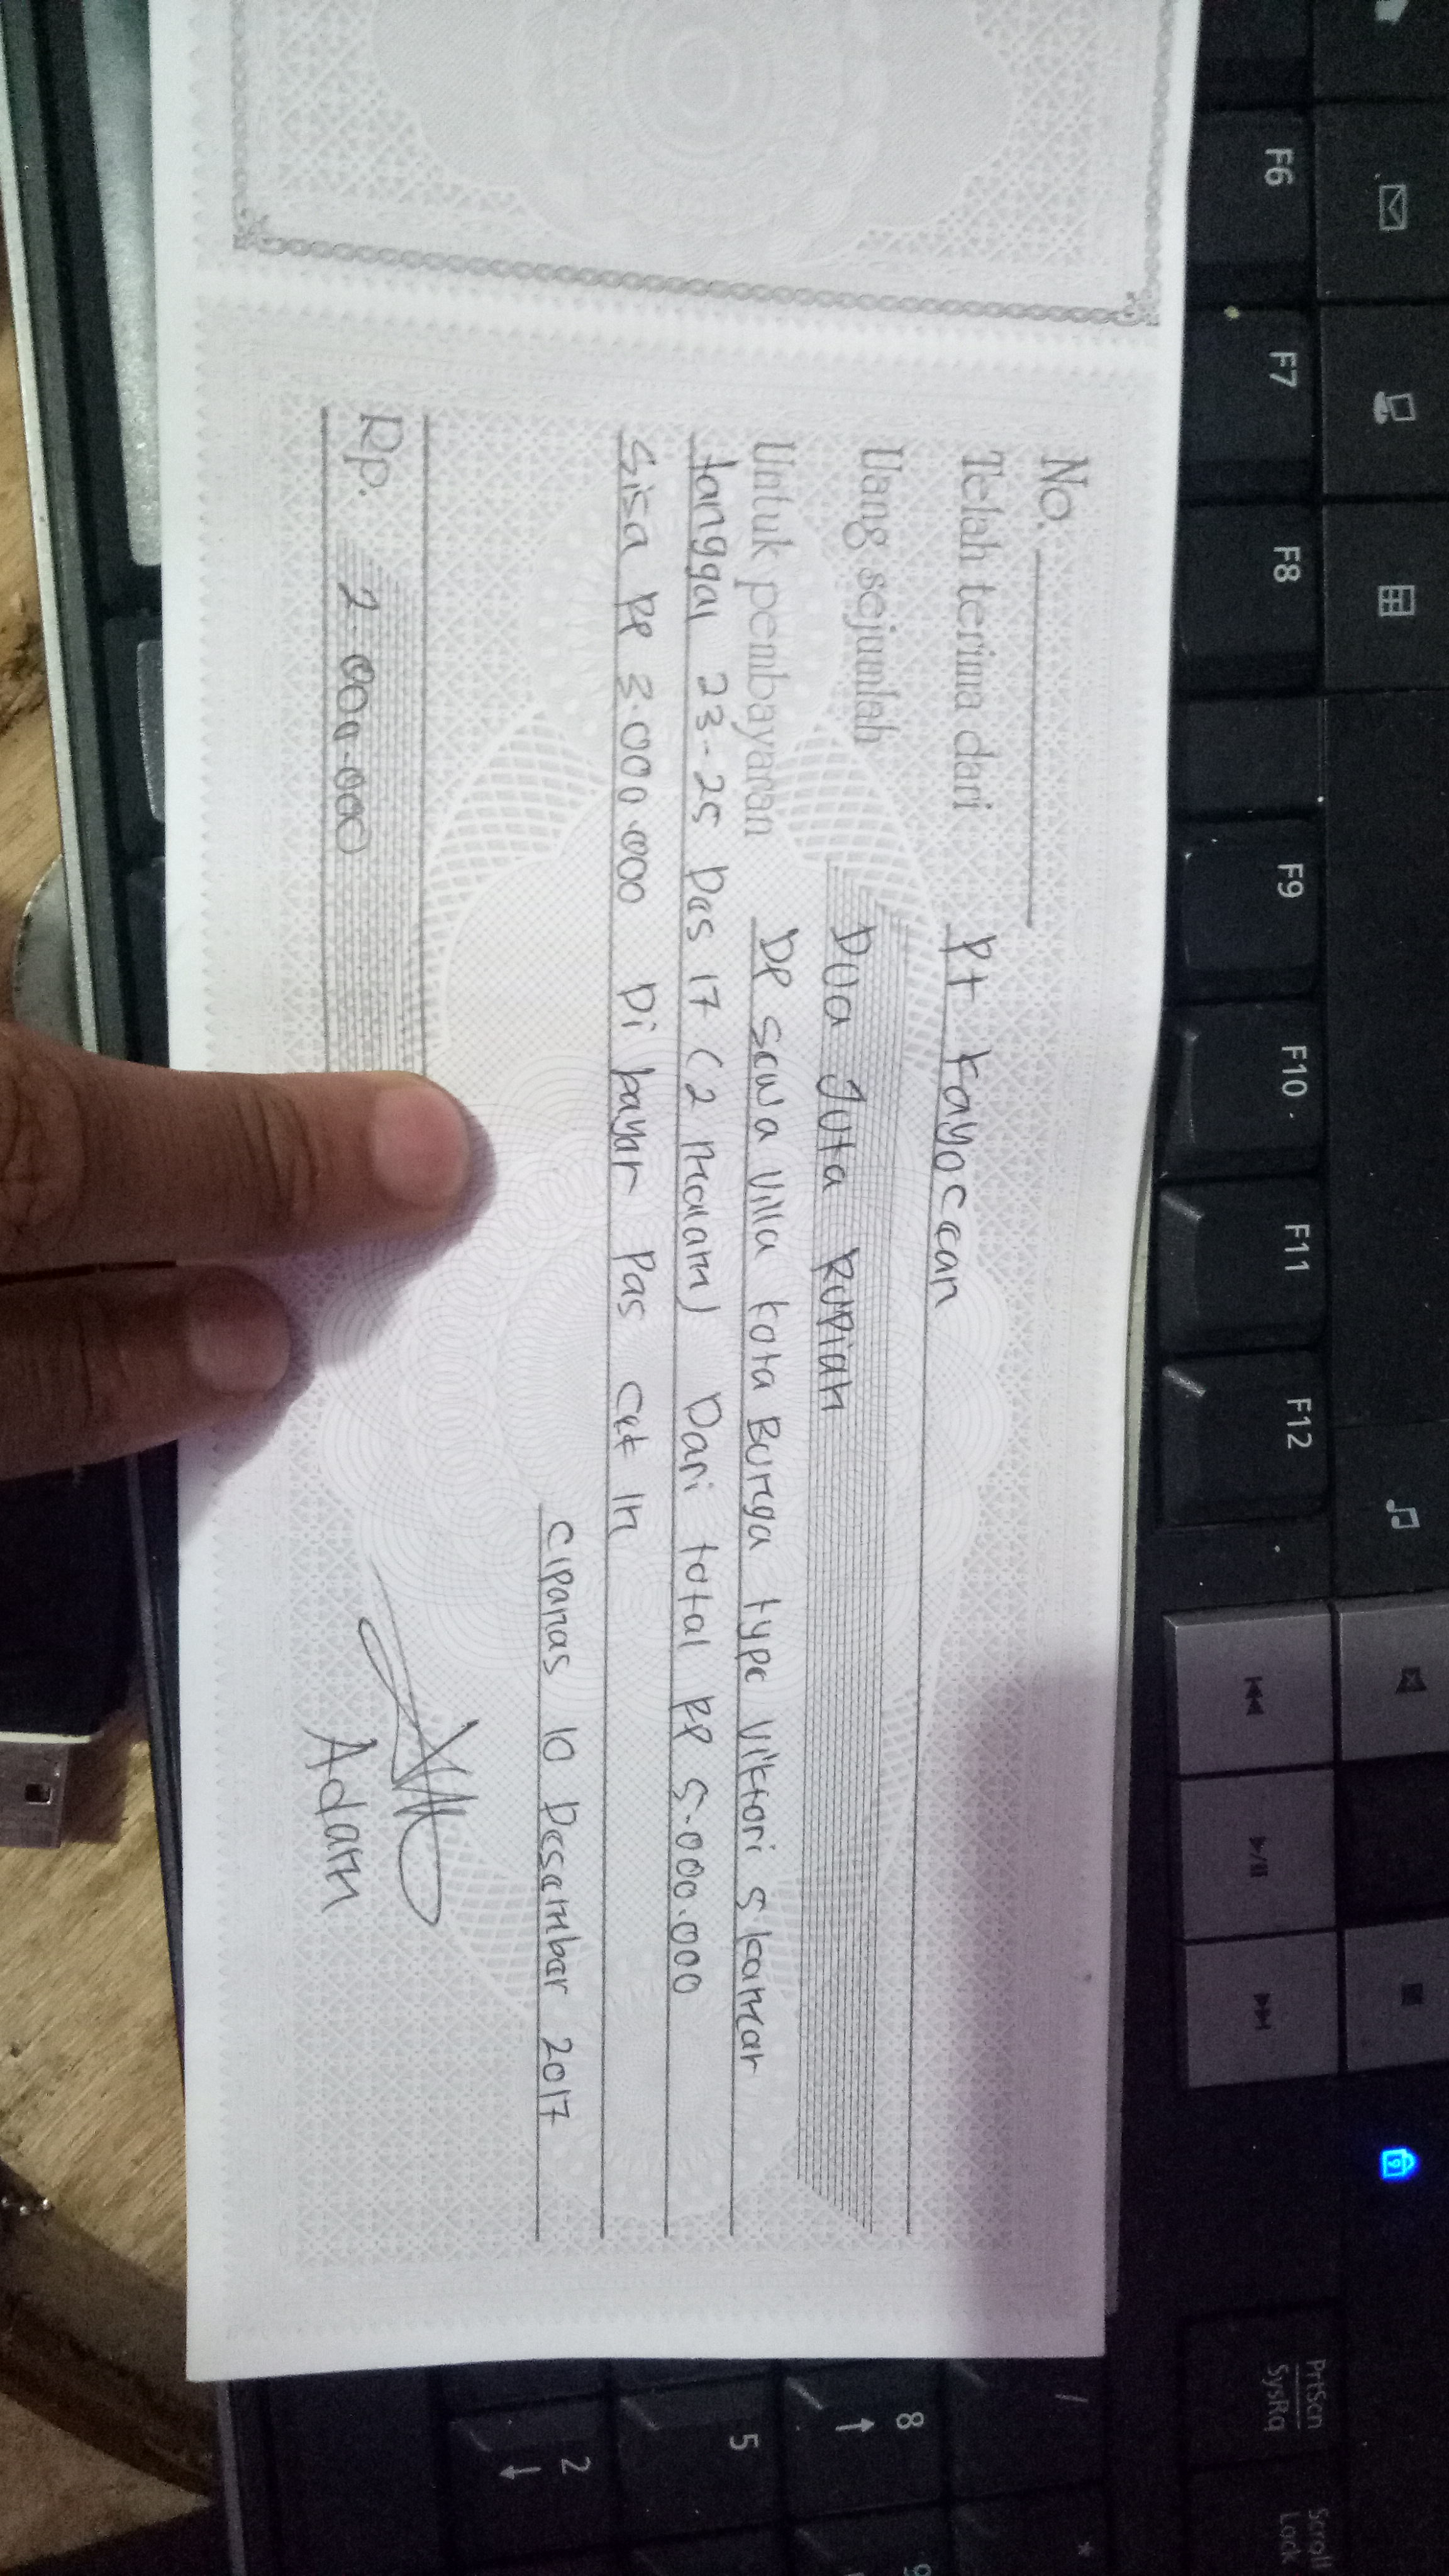 No.
Telah terima dari Pt Kayoccan
Uang sejumlah Dua Juta Rupiah
Untuk pembayaran DP sewa villa kota Bunga type Viktori 5 kamar
tanggal 23-25 Des 17 (2 Malam) Dari total RP 5.000.000
sisa RP 3.000.000 Di bayar Pas Cet In
Cipanas 10 Desember 2017
Rp. 2.000.000
Adam
F6
F7
F8
F9
F10
F11
F12
PrtScn
SysRq
Scroll
Lock
/
*
8
9
5
2